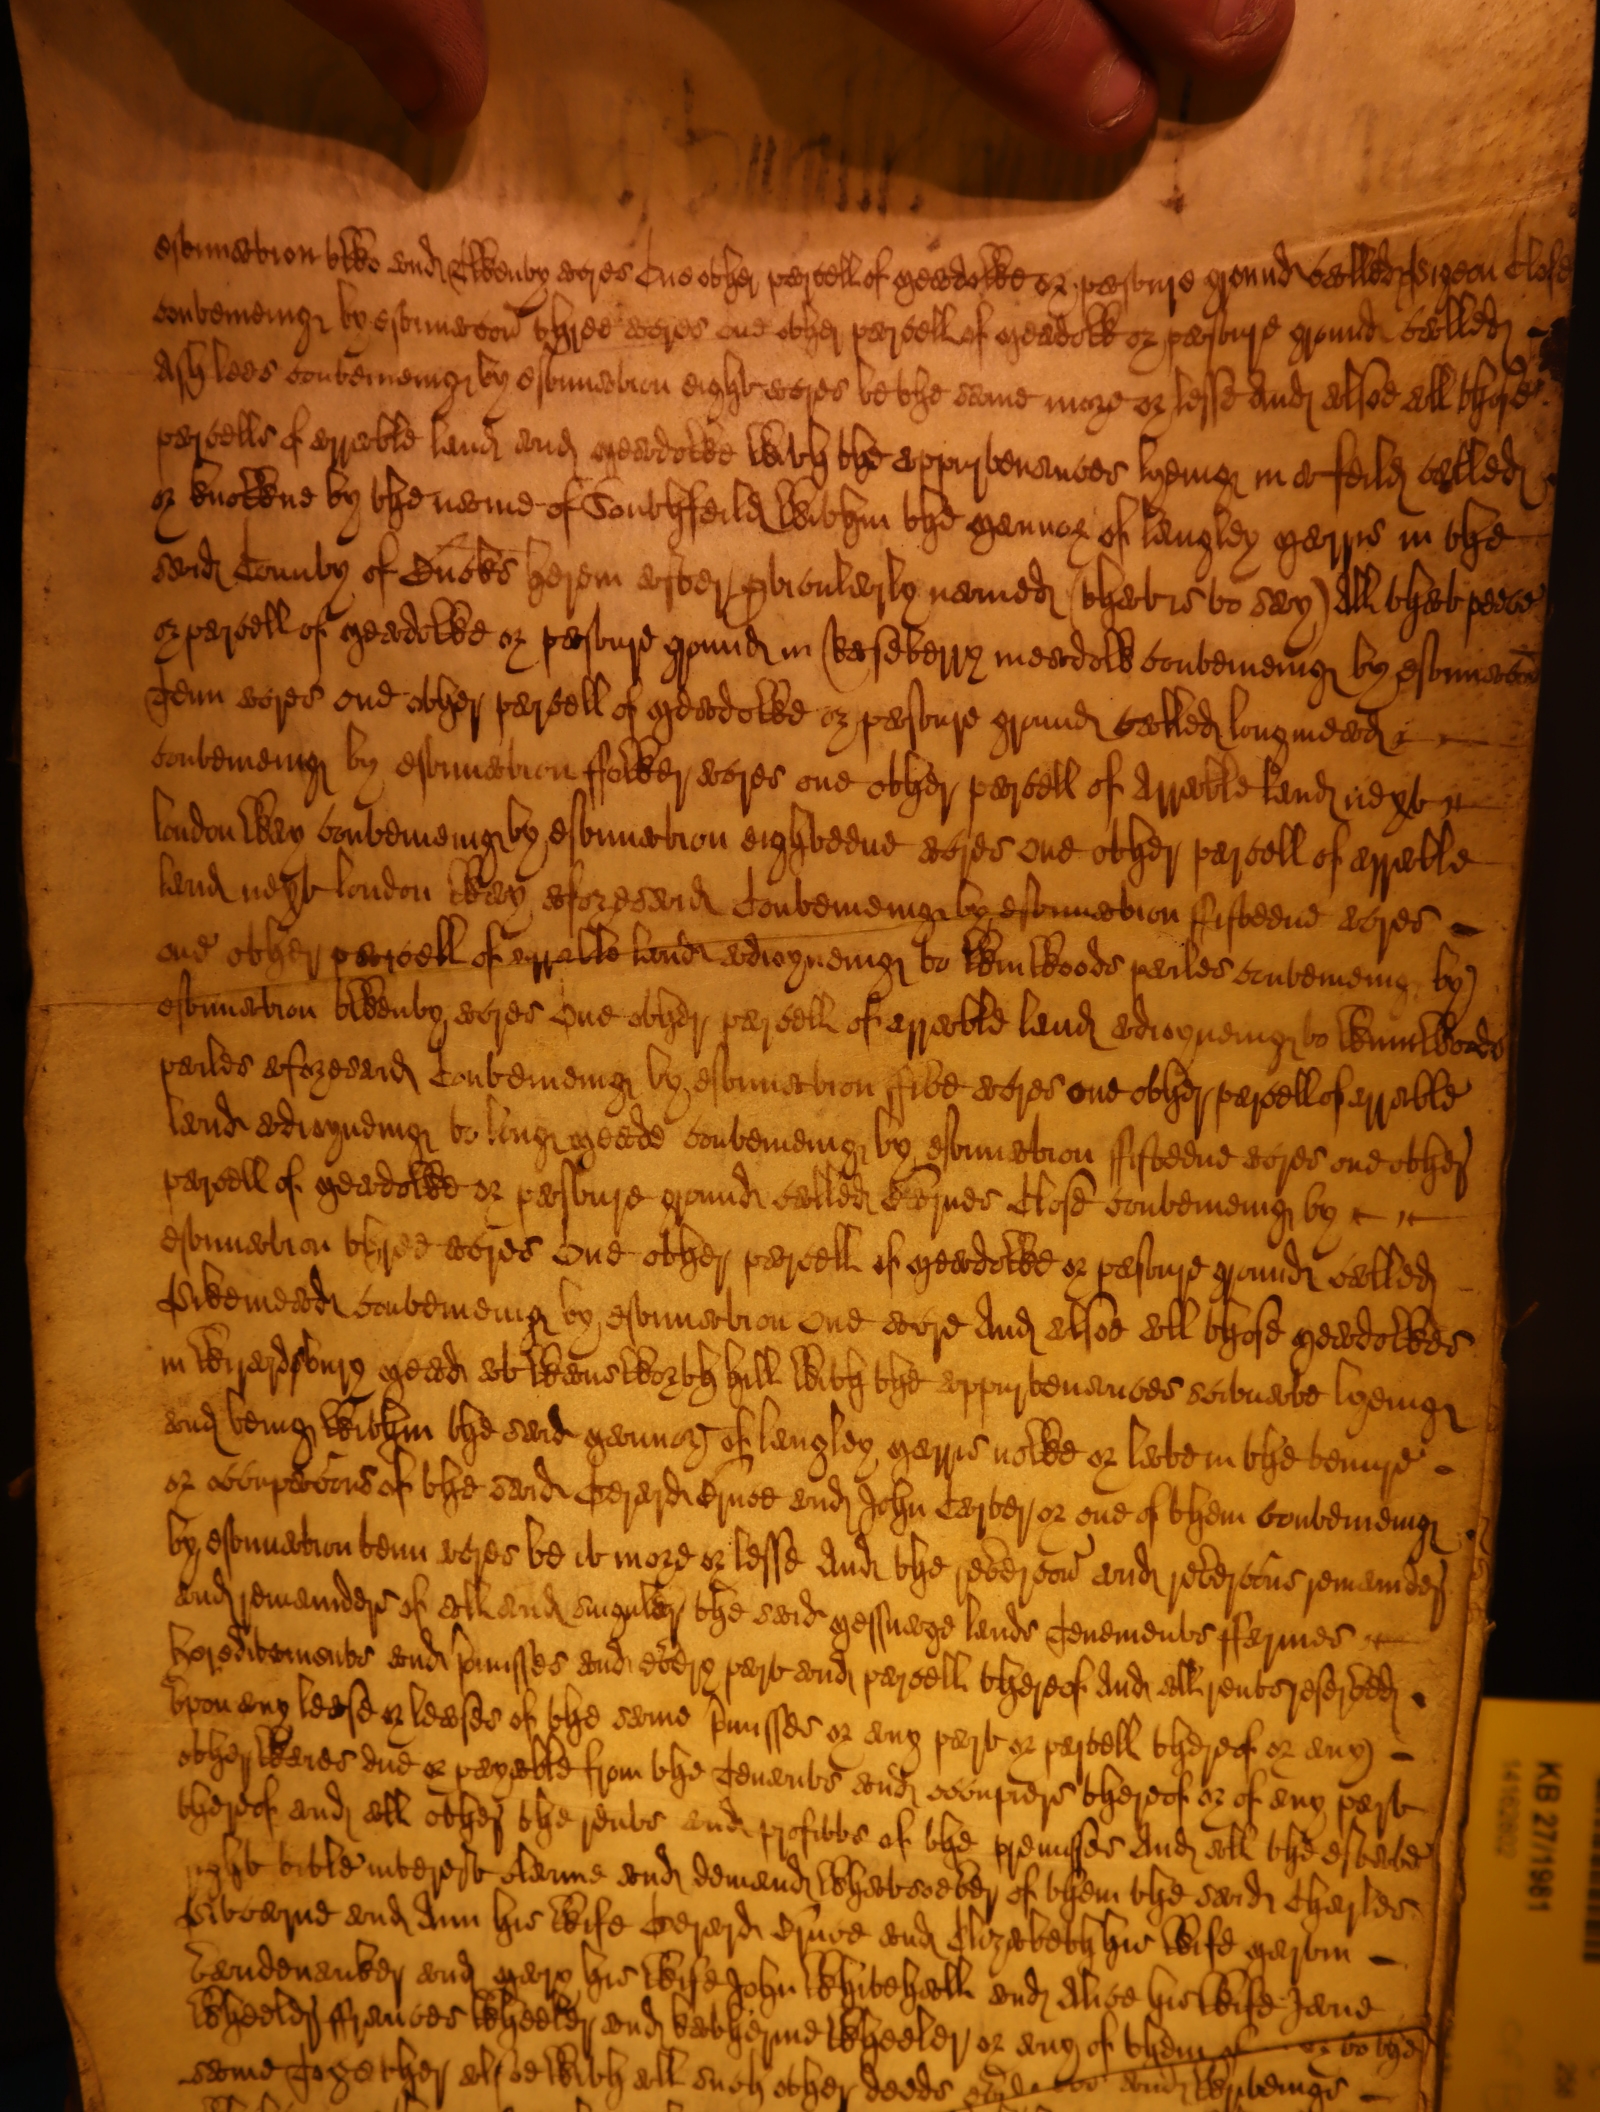 estimation two and Twenty acres One other parcell of Meadowe or pasture ground called Pigeon Close
conteineing by estimacon three acres one other parcell of Meadow or pasture ground called
Ash lees conteineing by estimation eight acres be the same more or lesse And alsoe all those
parcells of arrable land and Meadowe with the appurtenances lyeing in a feild called
or knowne by the name of Southfeild within the Mannor of Langley Marris in the
said County of Bucks herein after pticularly named (that is to say) All that peece
or parcell of Meadowe or pasture ground in Raseberry meadow conteineing by estimacon
Tenn acres one other parcell of Meadowe or pasture ground called longmead
conteineing by estimation ffower acres one other parcell of Arrable land next
London Way conteineing by estimation eighteene acres one other parcell of arrable
land next London Way aforesaid Conteineing by estimation fifteene acres
one other parcell of arrable land adioyneing to Winwoods pailes conteineing by
estimation twenty acres One other parcell of arrable land adioyneing to Winwoods
pailes aforesaid Conteineing by estimation ffive acres one other parcell of arrable
land adioyneing to long Meade conteineing by estimation ffifteene acres one other
parcell of Meadowe or pasture ground called Close conteineing by
estimation three acres One other parcell of Meadowe or pasture ground called
Pikemead conteineing by estimation One acre And alsoe all those Meadowes
in Wirardsbury Mead at Wansworth hill with the appurtenances scituate lyeing
and being within the said Mannor of Langley Marris nowe or late in the tenure
or occupacons of the said Gerard Bruce and John Carter or one of them conteineing
by estimation tenn acres be it more or lesse And the revercon and revercons remainder
and remainders of all and singuler the said Messuage lands Tenements ffarmes
hereditaments and pmisses and every part and parcell thereof And all rents reserved
upon any lease or leases of the same pmisses or any part or parcell thereof or any
other waies due or payable from the Tenants and occupiers thereof or of any part
thereof and all other the rents and profitts of the premisses And all the estate
right title interest claime and demand whatsoever of them the said Charles
Pitcarne and Ann his wife Gerard Bruce and Elizabeth his wife Martin
Vandenanker and Mary his wife John Whitehall and Alice his wife Jane
Wheeler ffrances Wheeler and Katherine Wheeler or any of them of or to the
same Together alsoe with all such other deeds and writeings
KB 27/1981
14162802